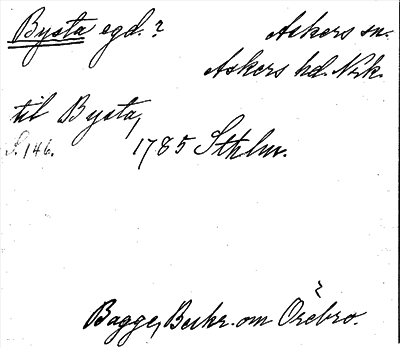 Bysta egd.? Askers sn.
Askers hd. Nrk.
til Bysta,
S. 146. 1785 Sthlm.
Bagge, Beskr. om Örebro.